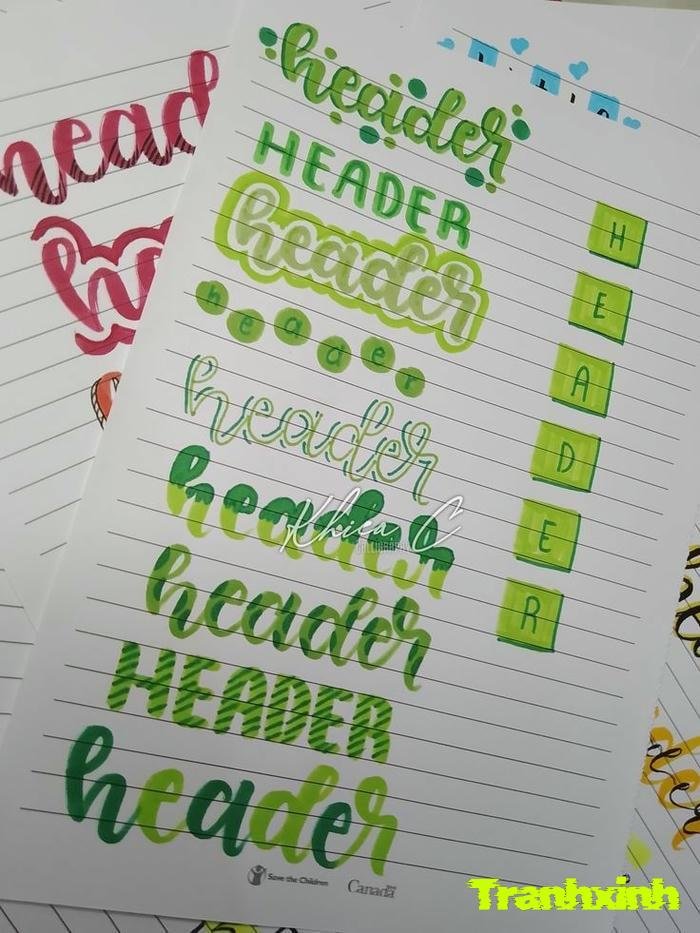 header
HEADER
header
header
header
header
header
HEADER
header
H
E
A
D
E
R
head
Khica C
CALLIGRAPHY
Save the Children
Canada
Tranhxinh